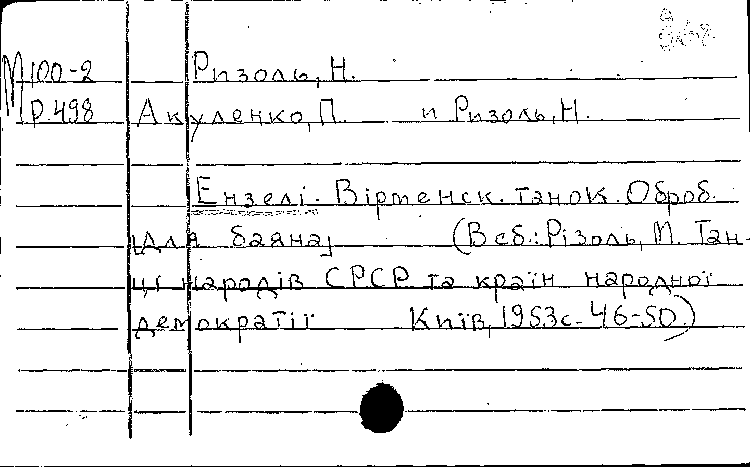 М 100-2 Ризоль, Н.
Р 498 Акуленко, П. и Ризоль, Н.
Ензелі. Вірменск. танок. Оброб.
[для баяна] (В сб.: Різоль, М. Тан-
ці народів СРСР та країн народної
демократії Київ, 1953 с. 46-50.)